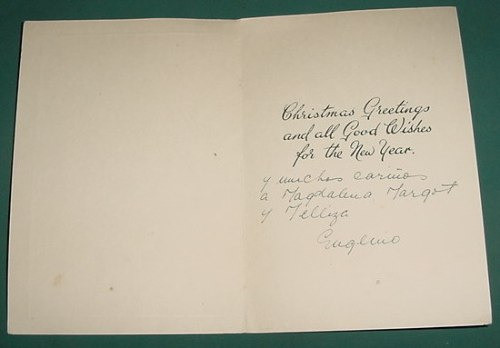 Christmas Greetings
and all Good Wishes
for the New Year.
y muchos cariños
a Magdalena Margot
y